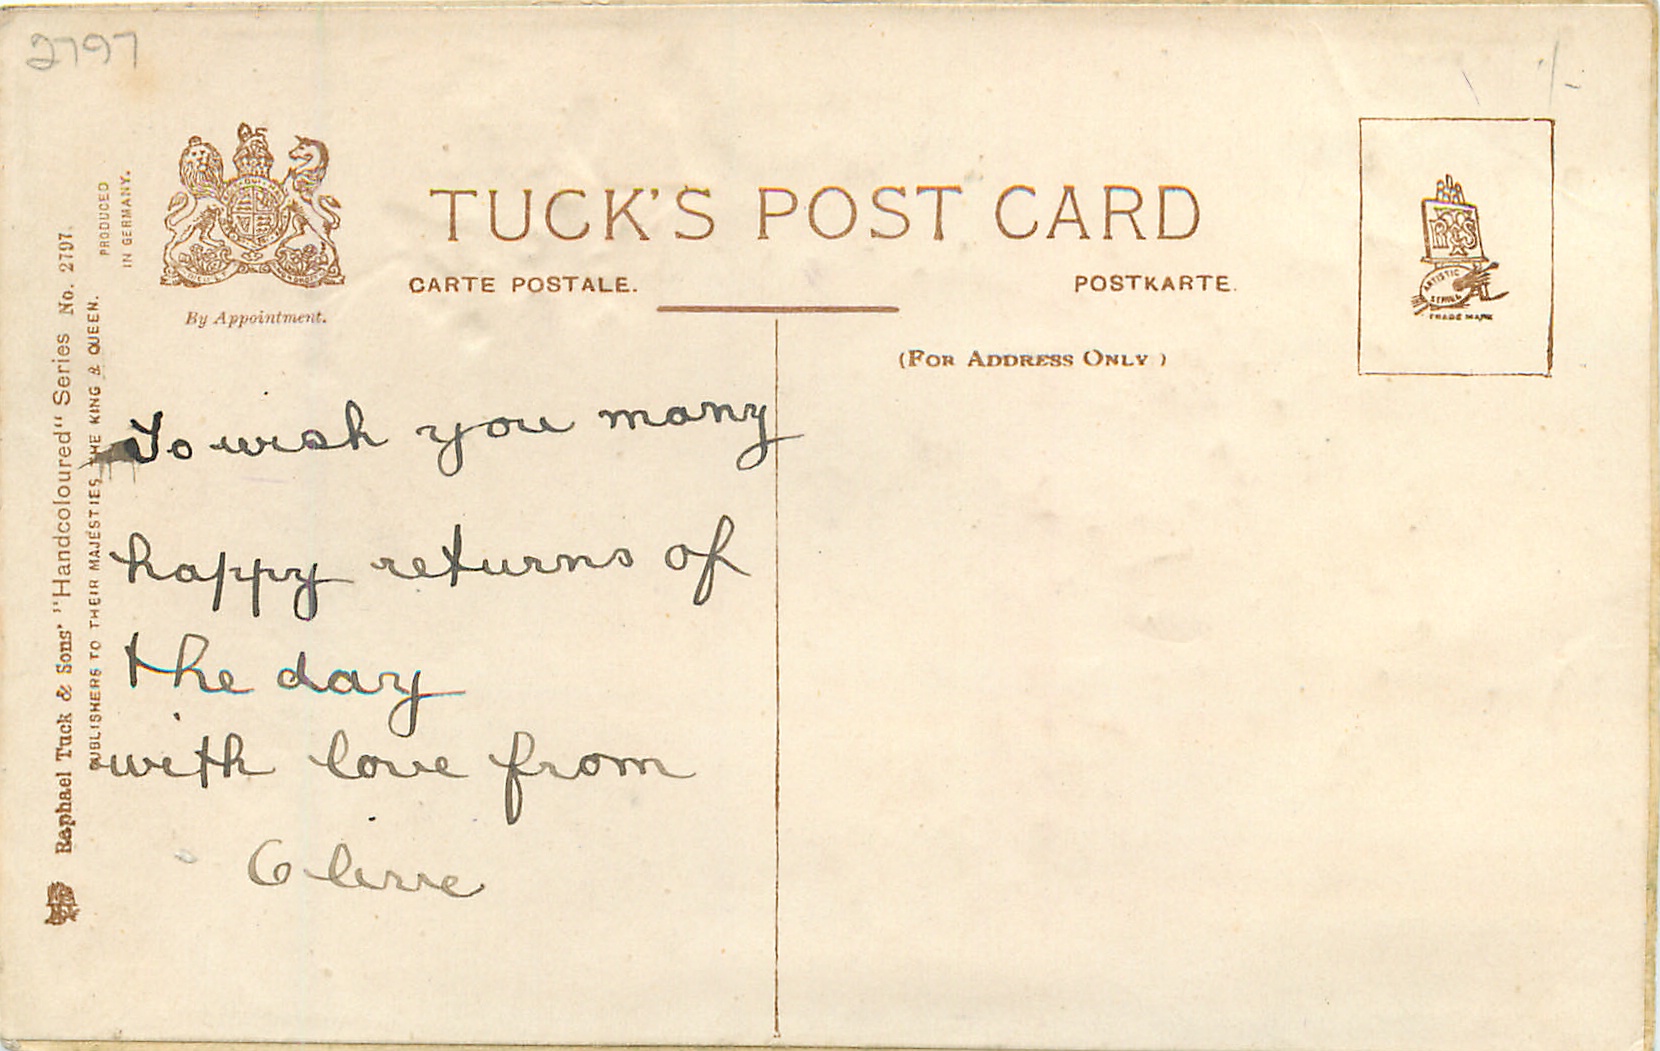 2797
TUCK'S POST CARD
CARTE POSTALE.
POSTKARTE.
By Appointment.
(FOR ADDRESS ONLY)
ARTISTIC
SERIES
TRADE MARK
PRODUCED
IN GERMANY.
Raphael Tuck & Sons' "Handcoloured" Series No. 2797.
PUBLISHERS TO THEIR MAJESTIES THE KING & QUEEN.
To wish you many
happy returns of
the day
with love from
Olive